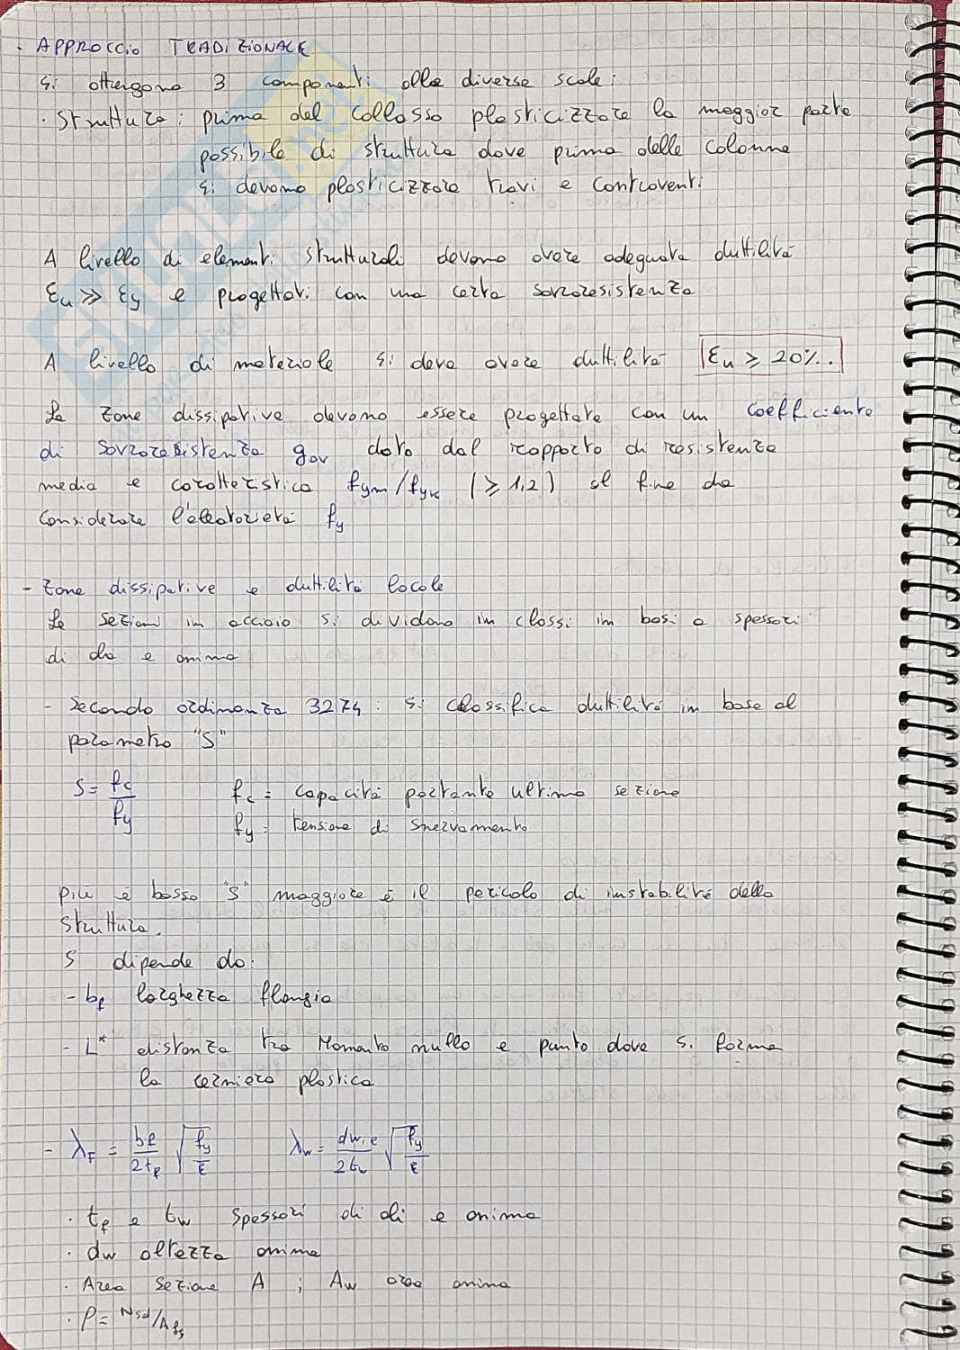 · APPROCCIO TRADIZIONALE
Si ottengono 3 componenti alle diverse scale:
· Struttura: prima del collasso plasticizzare la maggior parte
possibile di struttura dove prima delle colonne
si devono plasticizzare travi e controventi
A livello di elementi strutturali devono avere adeguata duttilità
εu >> εy e progettati con una certa sovraresistenza
A livello di materiale si deve avere duttilità εu ≥ 20%.
Le zone dissipative devono essere progettate con un coefficiente
di sovraresistenza gov dato dal rapporto di resistenza
media e caratteristica fym/fyk (≥ 1,2) al fine da
considerare l'aleatorietà fy
- Zone dissipative e duttilità locale
Le sezioni in acciaio si dividono in classi in basi a spessori
di ala e anima
- Secondo ordinanza 3274: si classifica duttilità in base al
parametro "S"
S = fc/fy fc = capacità portante ultima sezione
fy = tensione di snervamento
Più è basso "S" maggiore è il pericolo di instabilità della
struttura.
S dipende da:
- bf larghezza flangia
- L* distanza tra Momento nullo e punto dove si forma
la cerniera plastica
- λF = bf/2tf √fy/E λw = dw,e/2tw √fy/E
· tf e tw spessori di ali e anima
· dw altezza anima
· Area Sezione A ; Aw area anima
· ρ = Nsd/Afy